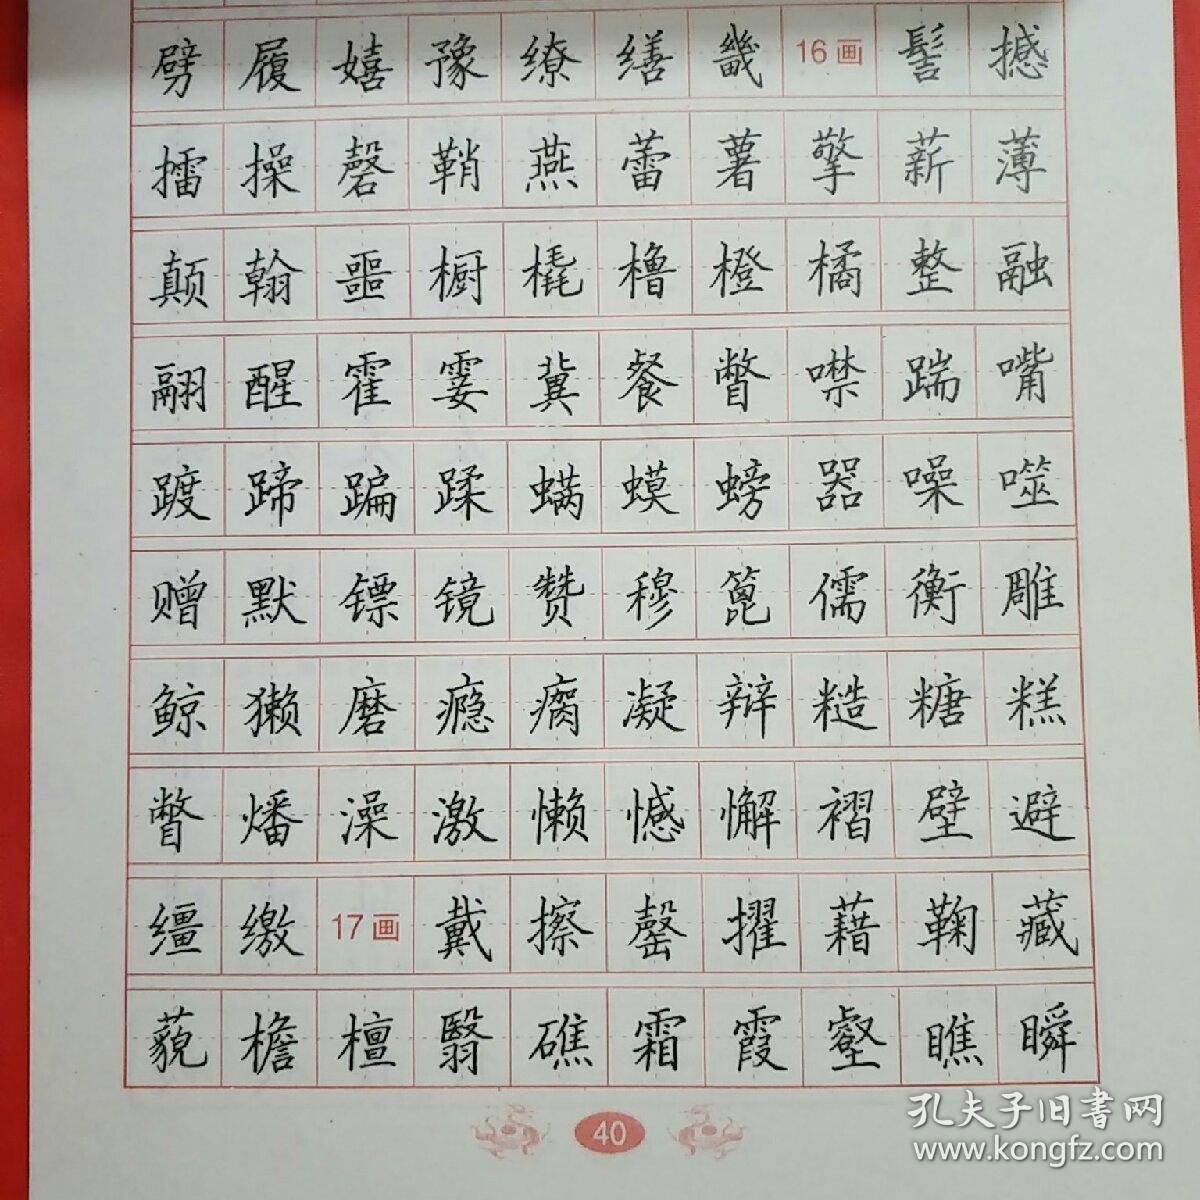 劈履嬉豫缭缮畿16画髻撼
擂操磬鞘燕蕾薯擎薪薄
颠翰噩橱橇橹橙橘整融
翮醒霍霎冀餐瞥噤踹嘴
踱蹄蹁蹂螨蟆螃器噪噬
赠默镖镜赞穆篦儒衡雕
鲸獭磨瘾瘸凝辩糙糖糕
瞥燔澡激懒憾懈褶壁避
缰缴17画戴擦罄擢藉鞠藏
藐檐檀翳礁霜霞壑瞧瞬
40
孔夫子旧书网
www.kongfz.com